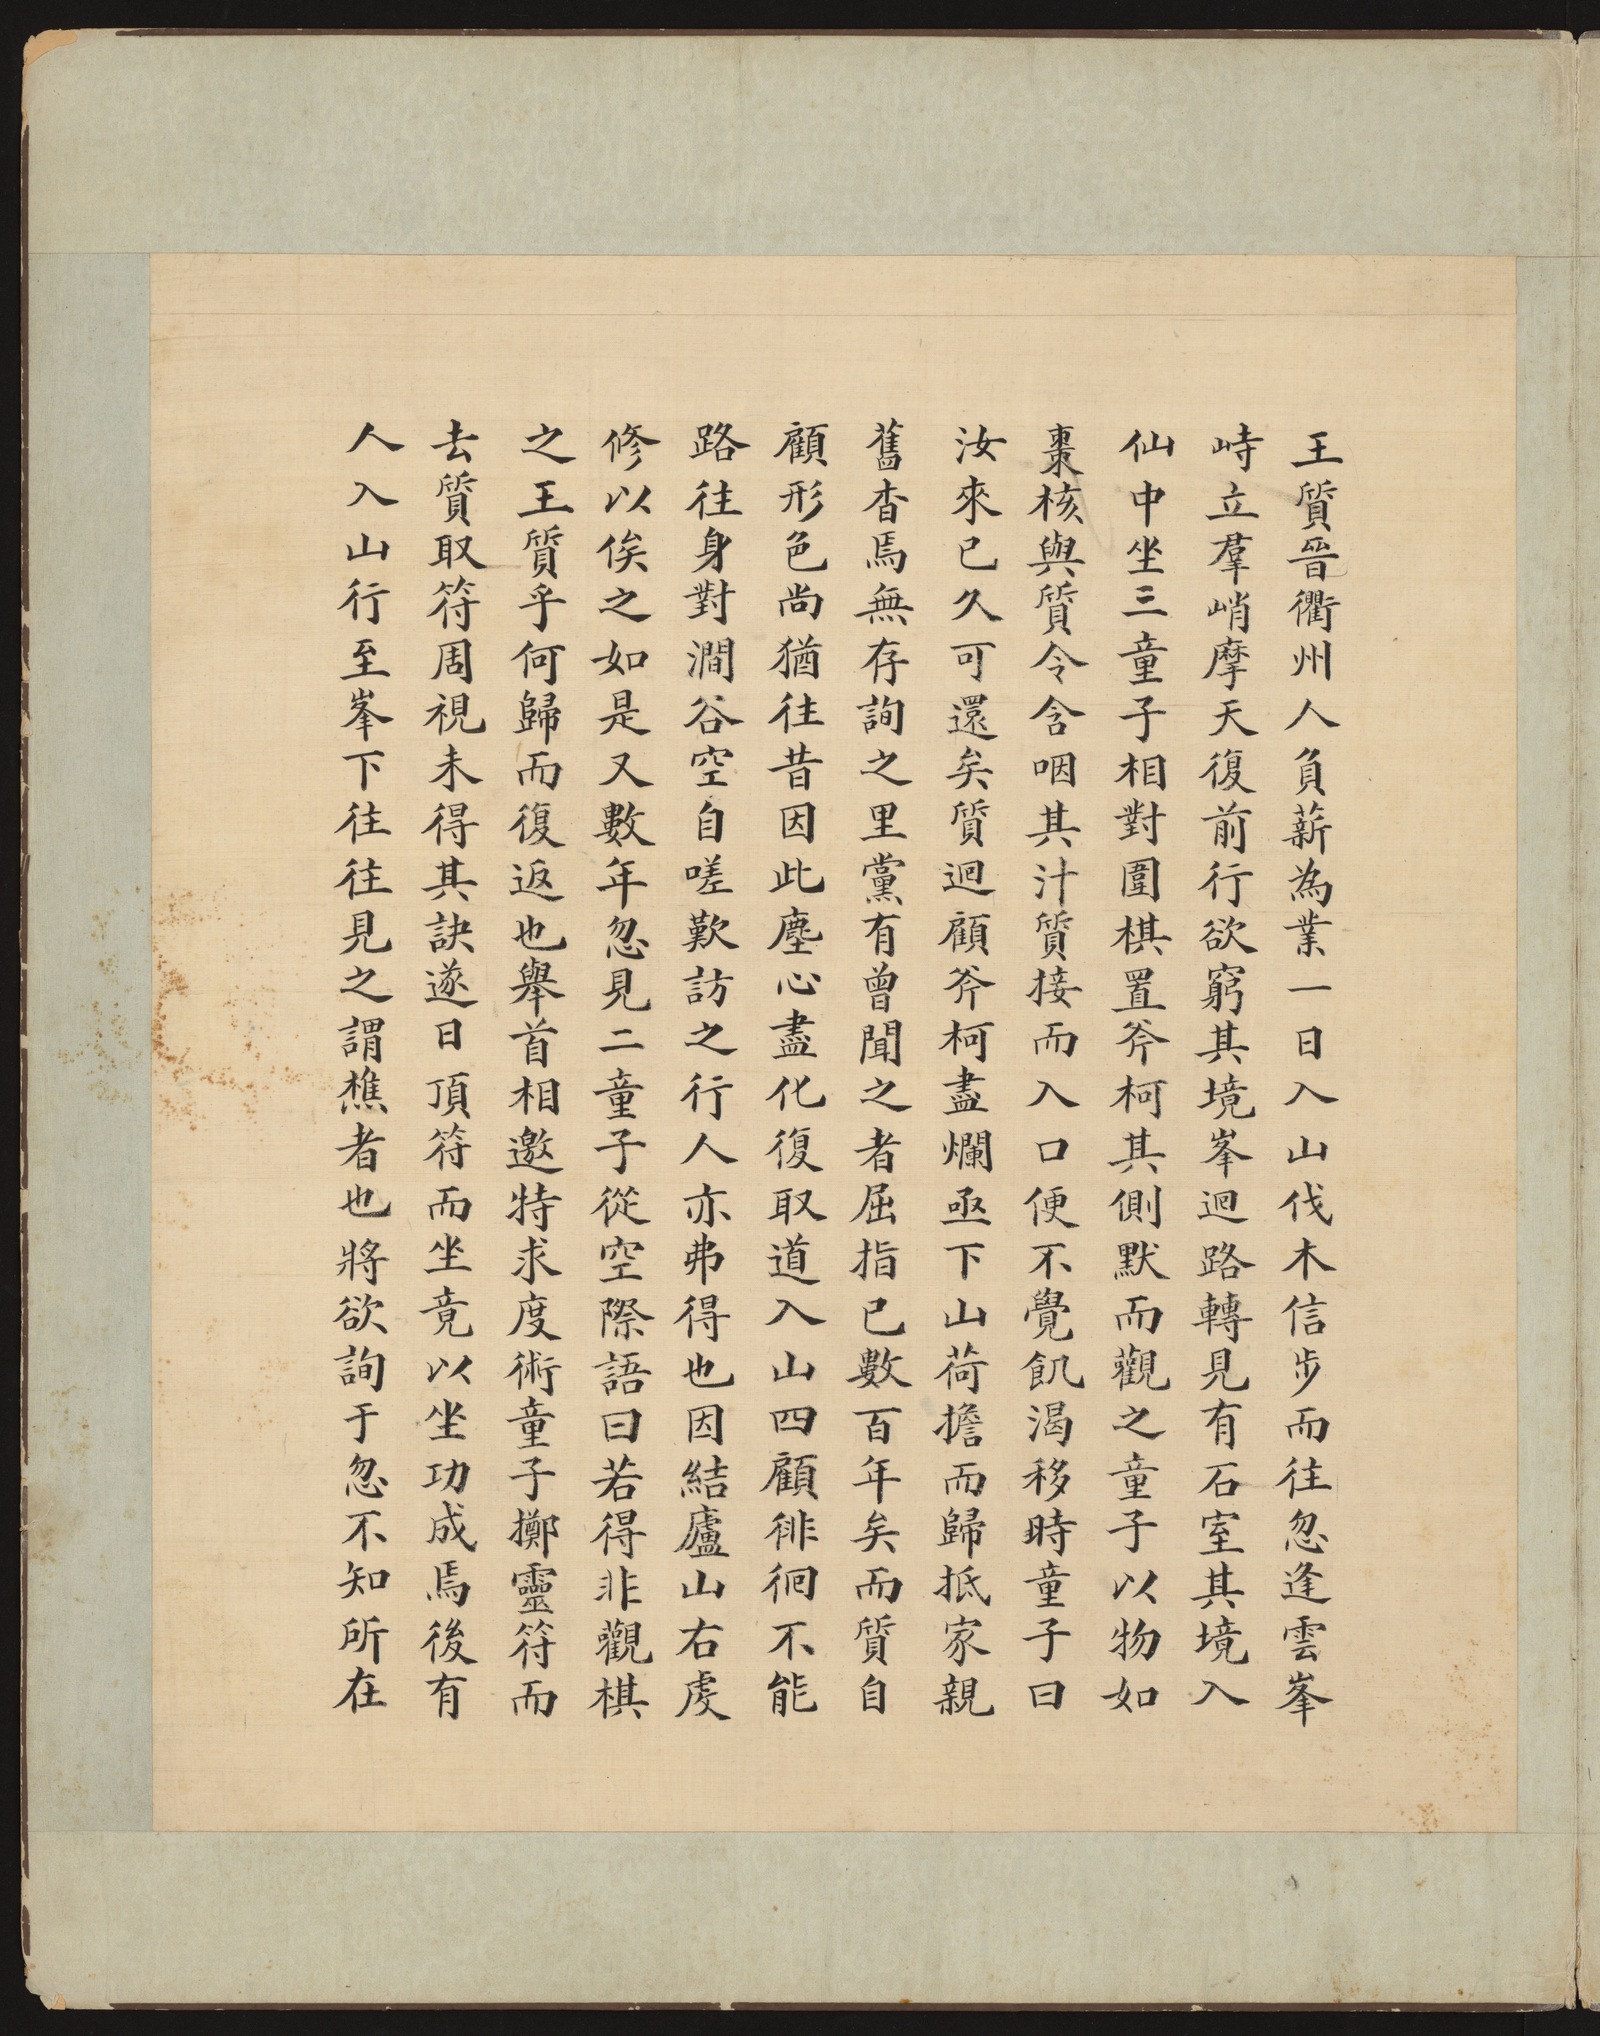 王質晉衢州人負薪為業一日入山伐木信步而往忽逢雲峯
峙立羣峭摩天復前行欲窮其境峯迴路轉見有石室其境入
仙中坐三童子相對圍棋置斧柯其側默而觀之童子以物如
棗核與質令含咽其汁質接而入口便不覺飢渴移時童子曰
汝來已久可還矣質迴顧斧柯盡爛亟下山荷擔而歸抵家親
舊杳焉無存詢之里黨有曾聞之者屈指已數百年矣而質自
顧形色尚猶往昔因此塵心盡化復取道入山四顧徘徊不能
路往身對澗谷空自嗟歎訪之行人亦弗得也因結廬山右虔
修以俟之如是又數年忽見二童子從空際語曰若得非觀棋
之王質乎何歸而復返也舉首相邀特求度術童子擲靈符而
去質取符周視未得其訣遂日頂符而坐竟以坐功成焉後有
人入山行至峯下往往見之謂樵者也將欲詢于忽不知所在